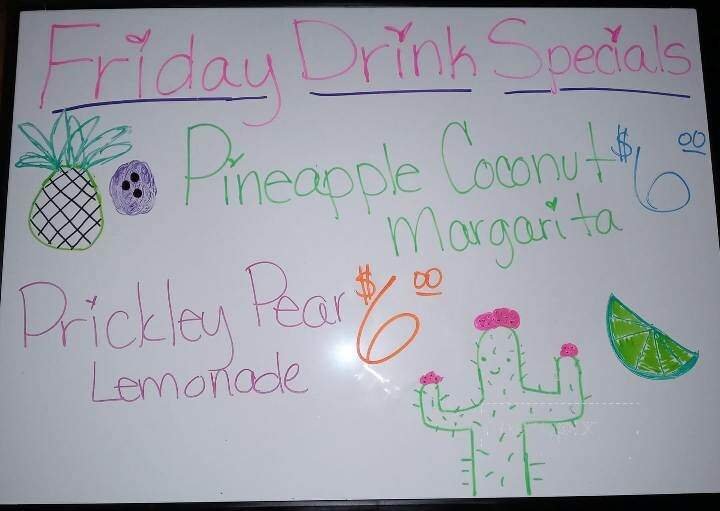 Friday Drink Specials
Pineapple Coconut $6.00
Margarita
Prickley Pear $6.00
Lemonade